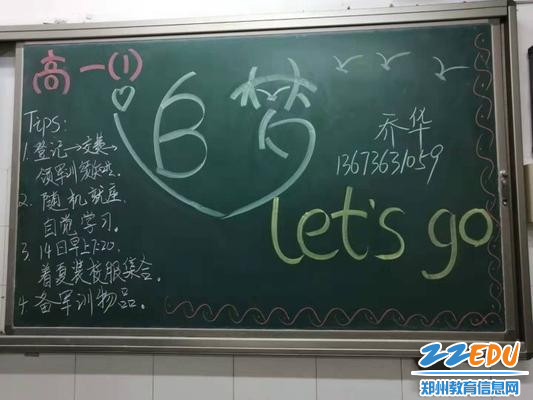 高一(1)
追梦
Tips:
1. 登记→交装→
领军训
2. 随机就座.
自觉学习.
3. 14日早上7:20.
着夏装校服集合.
4. 备军训物品.
乔华
13673631059
let's go
ZZEDU
郑州教育信息网